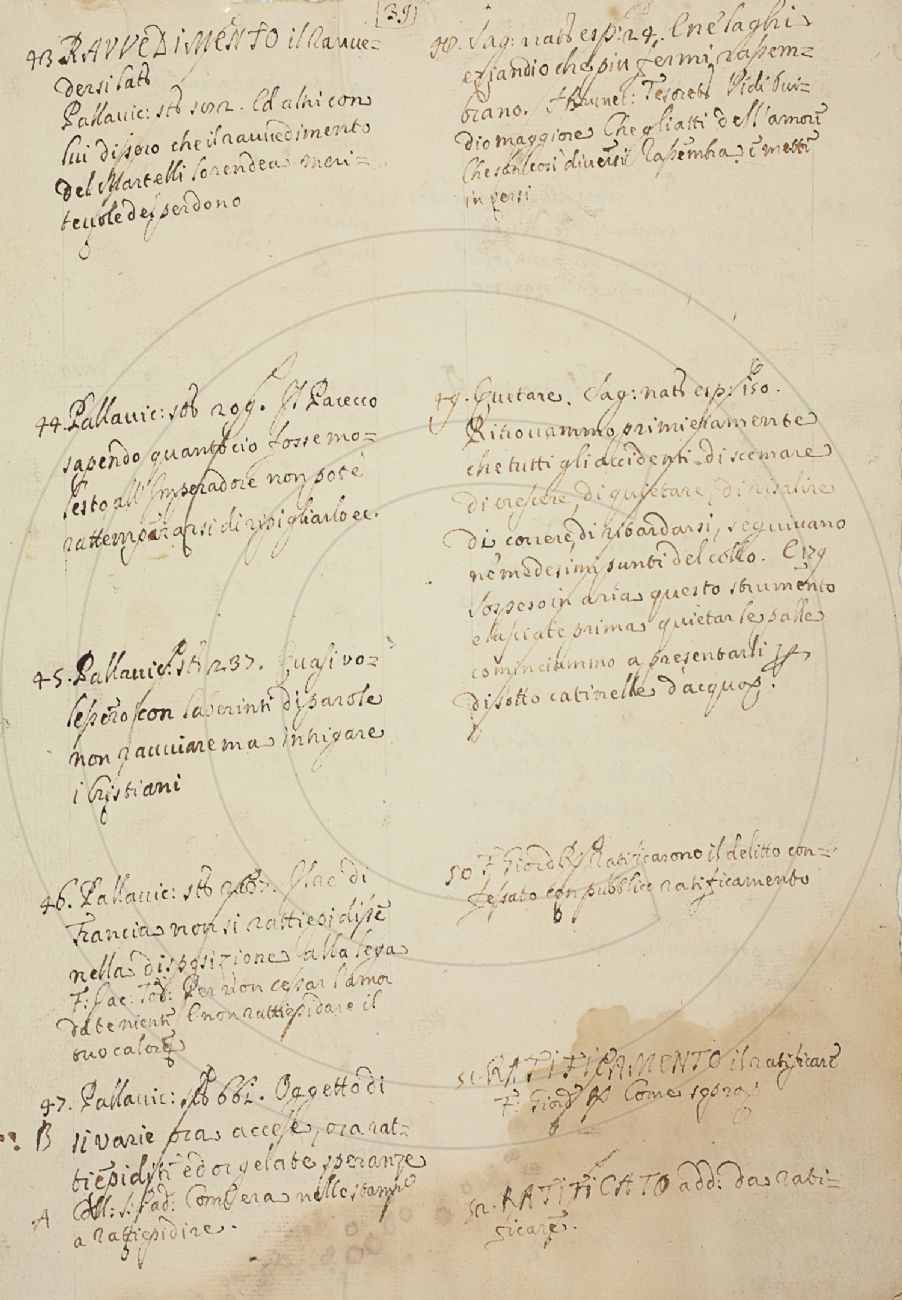 (39)
43. RAVVEDIMENTO il Ravve=
dersi Lat.
Pallavic: st. 502. Ed altri con
lui dissero che il ravvedimento
del Martelli lo rendea meri=
tevole del perdono
44. Pallavic: st. 209. Il Pacecco
sapendo quanto ciò fosse mo=
lesto all'Imperadore non potè
rattemperarsi di ripigliarlo ec.
45. Pallavic: st. 237. Quasi vo=
lessero con laberinti di parole
non ravviare ma intrigare
i Cristiani
46. Pallavic: st. di
Francia non si rattiepidisse
nella disposizione alla lega
F: Iac: Tod: Per non cessar l'amor
date niente E non rattiepidare il
tuo calore
47. Pallavic: st. 662. Oggetto di
B sì varie ora accese, ora rat=
tiepidite ed or gelate speranze
A Coll: S: Pad: Com'era nelle stampe
a rattiepidire.
48. Sag: nat. esp: 24. E ne' laghi
eziandio che più fermi rassem=
brano. Brunet: Tesoret. Vidi Ovi=
dio maggiore Che gli atti dell'amore
Che son così diversi Rassembra, e mette
in versi
49. Quetare. Sag: nat. esp: 150.
Ritrovammo primieramente
che tutti gli accidenti di scemare
di crescere, di quietare, di risalire
di correre, di ritardarsi, seguivano
ne' medesimi punti del collo. E 179
Sospeso in aria questo strumento
e lasciate prima quietar le palle
cominciammo a presentarli
di sotto catinelle d'acqua.
50 F. Giord. Ratificarono il delitto con=
fessato con pubblico ratificamento
51. RATIFICAMENTO il ratificare
F. Giord. Come sopra
52. RATIFICATO add: da rati=
ficare.